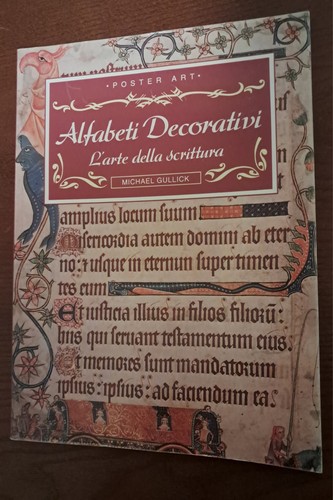 · POSTER ART ·
Alfabeti Decorativi
L'arte della scrittura
MICHAEL GULLICK
amplius locum suum
Misericordia autem domini ab eter
no: et usque in eternum super timen
tes eum
Et iusticia illius in filios filiorū:
hiis qui seruant testamentum eius.
Et memores sunt mandatorum
ipsius: ipsius: ad faciendum ea.